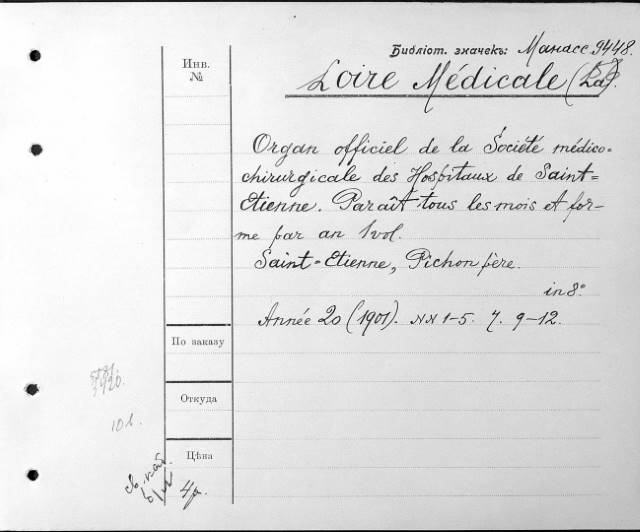 Библіот. значекъ: Манасс 9448.
Инв.
№
Loire Médicale (La).
Organ officiel de la Société médico-
chirurgicale des Hospitaux de Saint=
Etienne. Paraît tous les mois et for-
me par an 1 vol.
Saint=Etienne, Pichon père.
in 8°
Année 20 (1901). NN 1-5. 7. 9-12.
По заказу
Откуда
101.
Цѣна
4р.